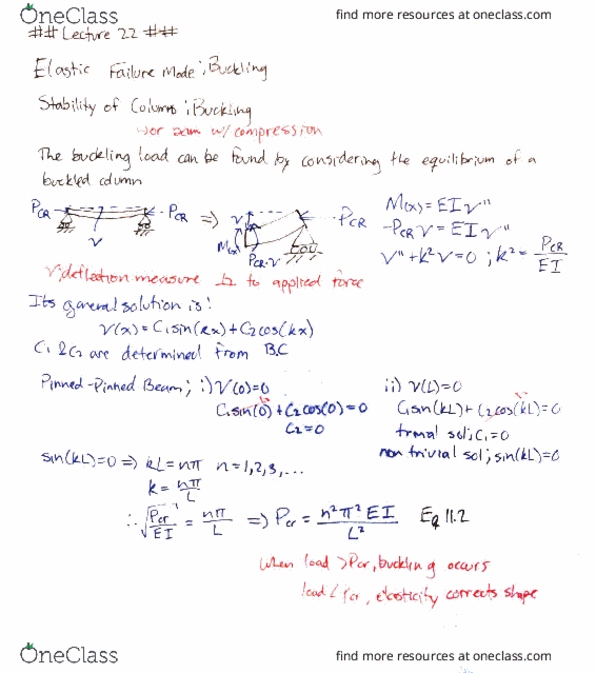 OneClass
find more resources at oneclass.com
## Lecture 22 ##
Elastic Failure Mode: Buckling
Stability of Columns: Buckling
↳or beam w/ compression
The buckling load can be found by considering the equilibrium of a
buckled column
PCR PCR ⇒ v PCR
v M(x) PCR·v
M(x) = EIv''
-PCR v = EIv''
v'' + k²v = 0 ; k² = PCR/EI
v: deflection measure ⊥ to applied force
Its general solution is:
v(x) = C₁sin(kx) + C₂cos(kx)
C₁ & C₂ are determined from B.C
Pinned-Pinned Beam; i) v(0)=0
C₁sin(0) + C₂cos(0) = 0
C₂=0
ii) v(L)=0
C₁sin(kL) + C₂cos(kL)=0
trival sol; C₁=0
non trivial sol; sin(kL)=0
sin(kL)=0 ⇒ kL = nπ n=1,2,3,...
k = nπ/L
∴ √(Pcr/EI) = nπ/L ⇒ Pcr = n²π²EI/L² Eq 11.2
when load > Pcr, buckling occurs
load < Pcr, elasticity corrects shape
OneClass
find more resources at oneclass.com